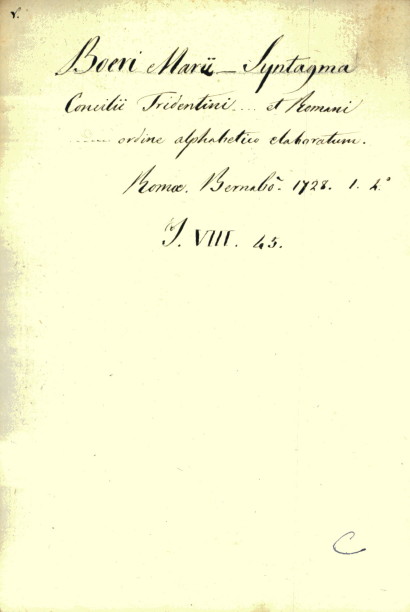 Boeri Marii _ Syntagma
Concilii Tridentini .... et Romani
...... ordine alphabetico elaboratum.
Romæ. Bernabò. 1728. 1. 4.°
J. VIII. 45.
C